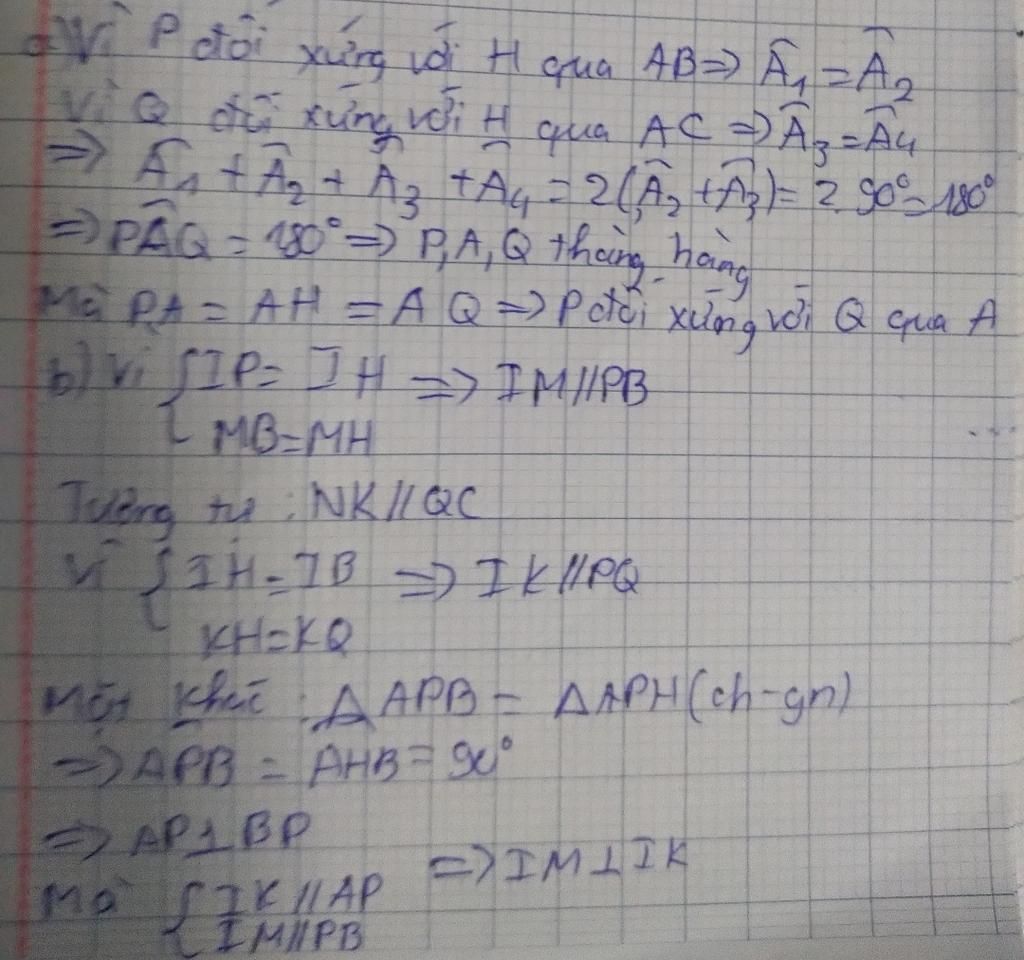 a) Vì P đối xứng với H qua AB => Â₁ = Â₂
Vì Q đối xứng với H qua AC => Â₃ = Â₄
=> Â₁ + Â₂ + Â₃ + Â₄ = 2(Â₂ + Â₃) = 2.90° = 180°
=> PÂQ = 180° => P, A, Q thẳng hàng
Mà PA = AH = AQ => P đối xứng với Q qua A
b) Vì { IP = IH => IM // PB
MB = MH
Tương tự : NK // QC
Vì { IH = IB => IK // PQ
KH = KQ
Mặt khác : Δ APB = Δ APH (ch-gn)
=> APB = AHB = 90°
=> AP ⊥ BP
Mà { IK // AP => IM ⊥ IK
IM // PB